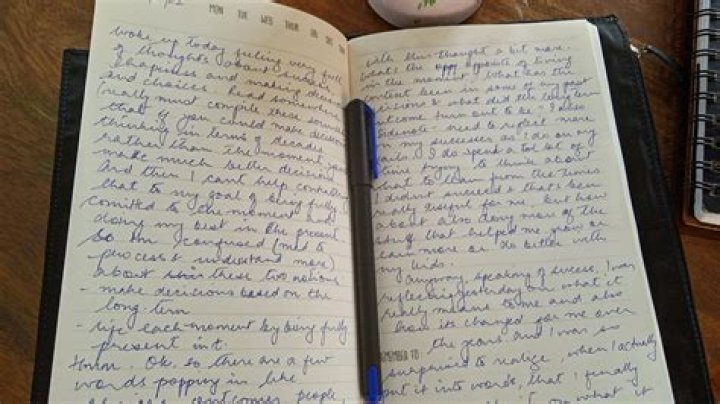 MON TUE WED THUR FRI SAT SUN
woke up today feeling very full
of thoughts about success,
happiness and making decisions
and choices. Read somewhere
(really must compile these sources)
that if you could make decisions
thinking in terms of decades
rather than the moment you
make much better decisions.
And then I can't help connecting
that to my goal of being fully
comitted to the moment and
doing my best in the present.
So I'm confused (need to
process & understand more)
about these two notions
- make decicions based on the
long-term
- life each moment by being fully
present in it.
Hmm. Ok, so there are a few
words popping in like
outcomes, people,
with this thought a bit more.
What's the opposite of living
in the moment? What has the
intent been in some of my past
decisions & what did the long term
outcome turn out to be? I also
sidenote - need to reflect more
on my successes as I do on my
fails. I do spend a lot of
time trying to think about
what to learn from the times
I didn't succeed & that's been
really useful for me but how
about also doing more of the
stuff that helped me grow or
earn more or do better with
my kids.
Anyway, speaking of success, I was
reflecting yesterday on what it
really means to me and also
how its changed for me over
the years and I was so
REMEMBER TO:
surprised to realize, when I actually
put it into words, that I finally
what it